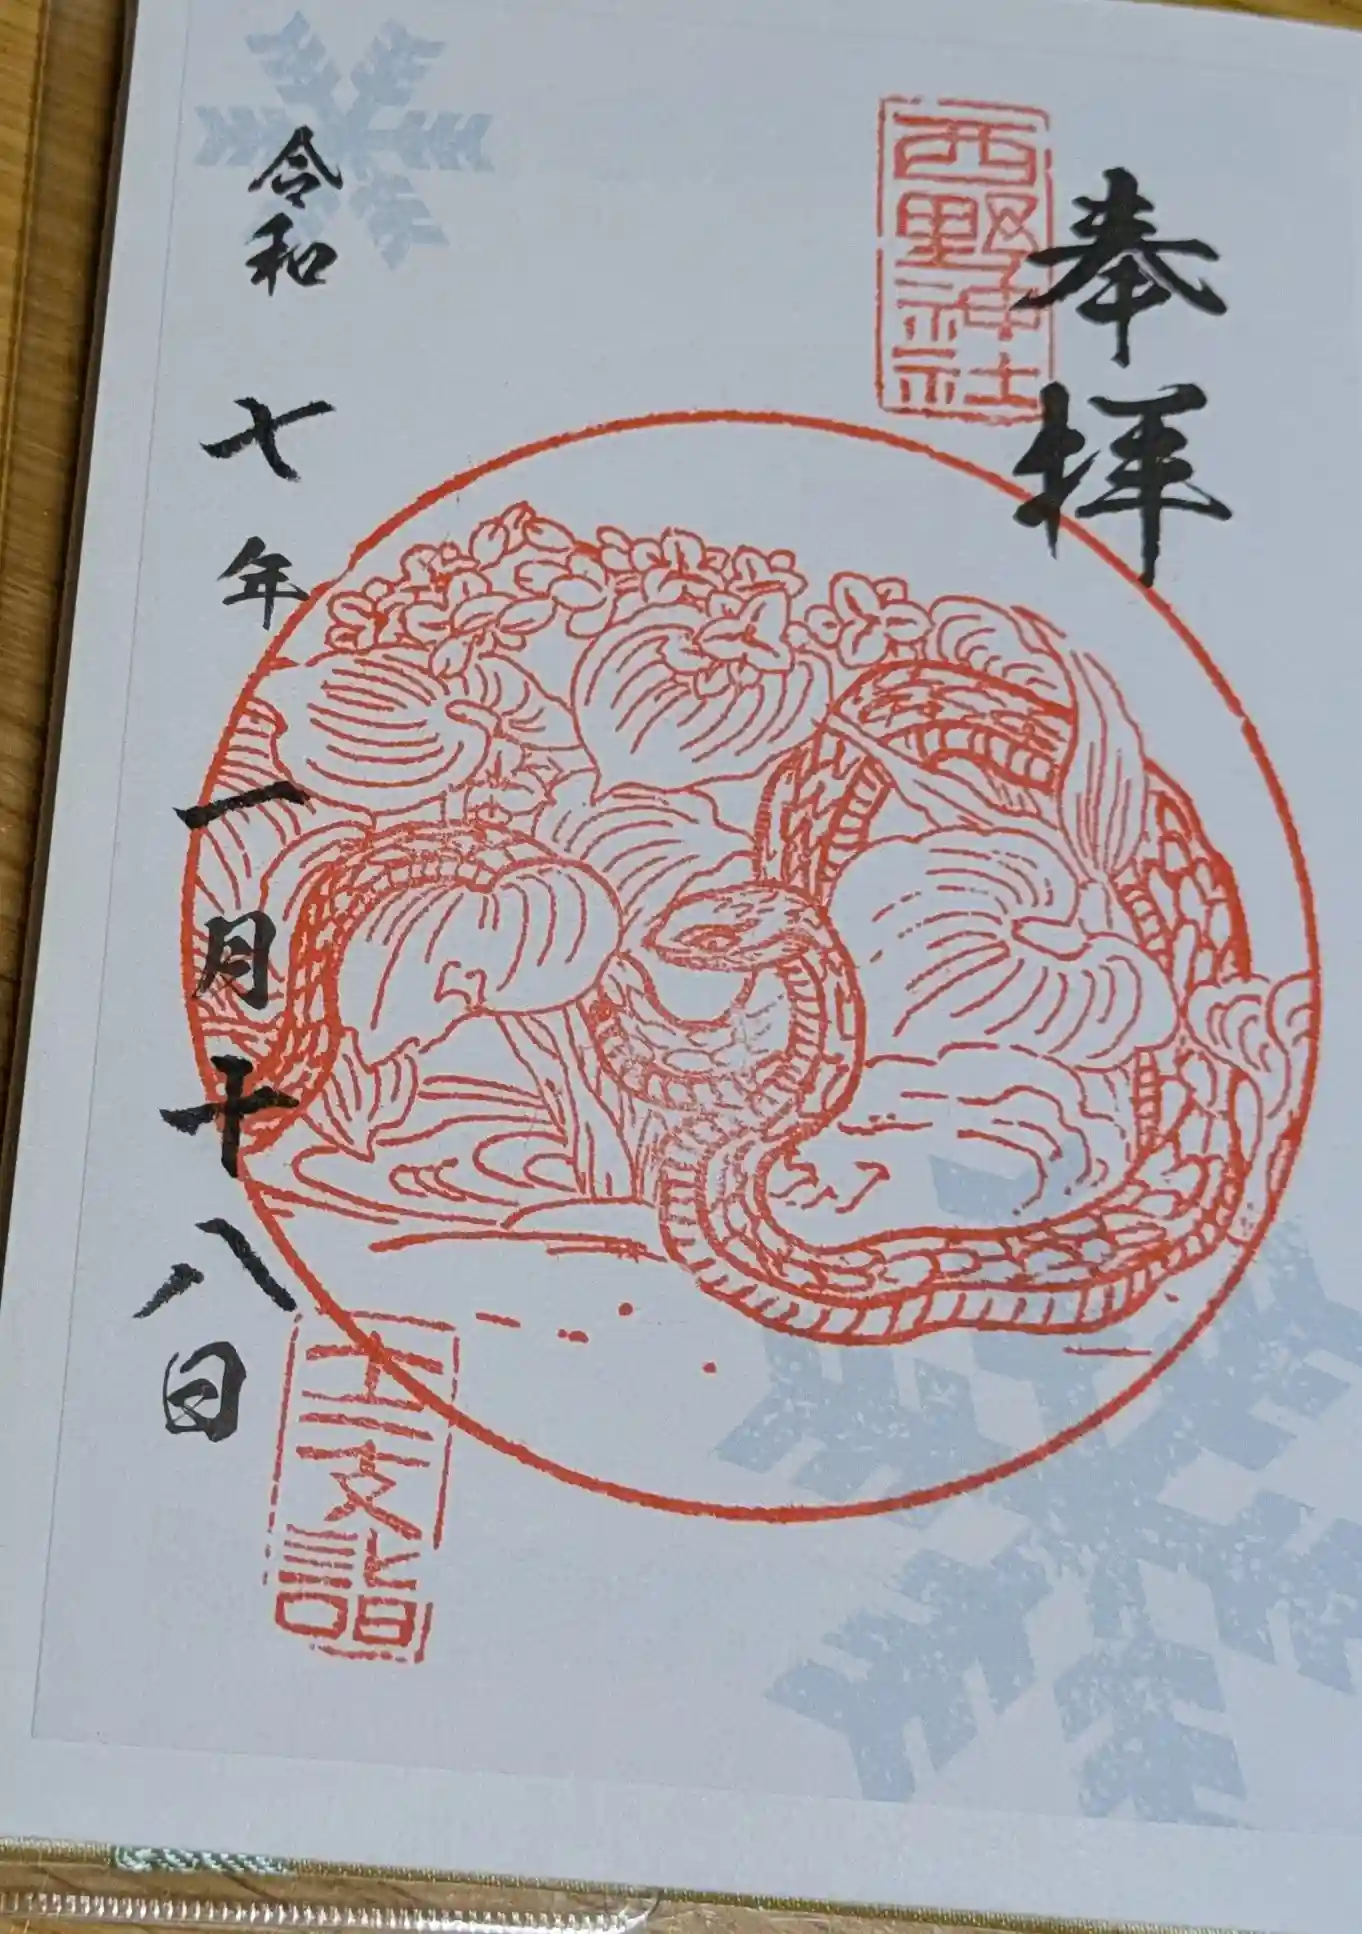 奉拝
西野神社
令和七年一月十八日
十二支詣